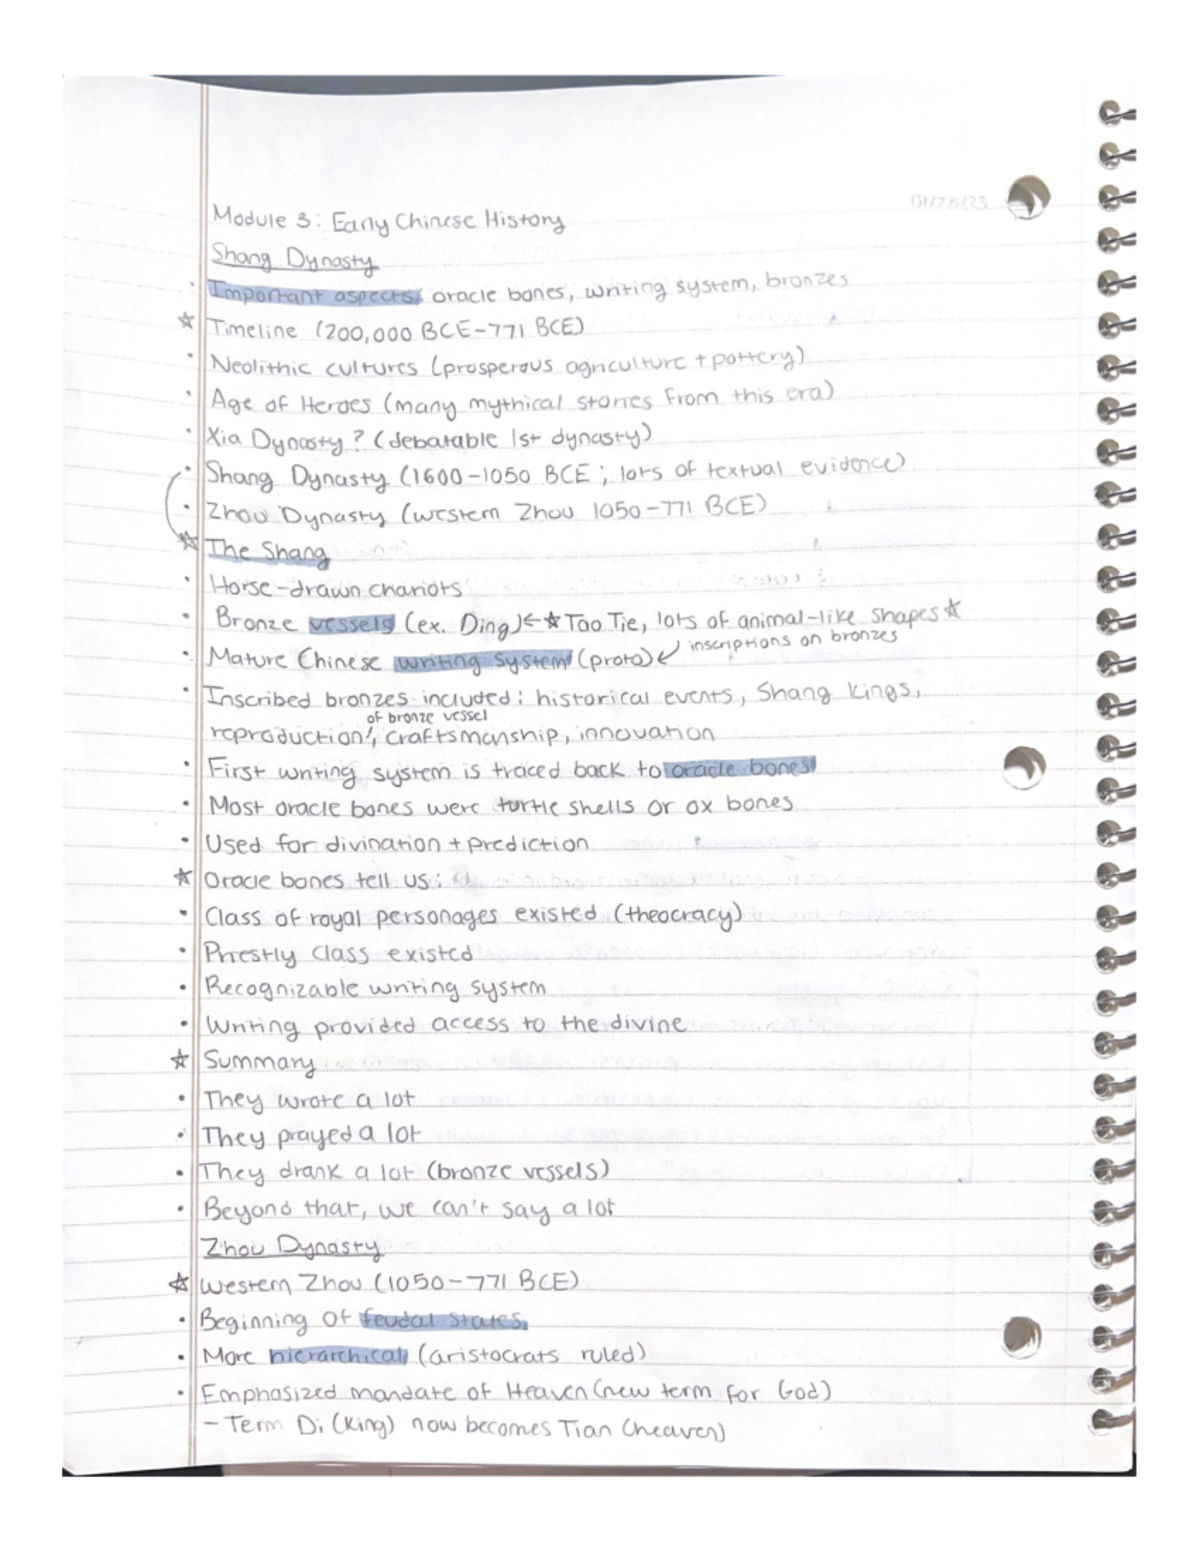 01/25/23
Module 3: Early Chinese History
Shang Dynasty
• Important aspects: oracle bones, writing system, bronzes
☆ Timeline (200,000 BCE-771 BCE)
• Neolithic cultures (prosperous agriculture + pottery)
• Age of Heroes (many mythical stories from this era)
• Xia Dynasty? (debatable 1st dynasty)
• Shang Dynasty (1600-1050 BCE; lots of textual evidence)
• Zhou Dynasty (western Zhou 1050-771 BCE)
☆ The Shang
• Horse-drawn chariots
• Bronze vessels (ex. Ding) ← ☆ Tao Tie, lots of animal-like shapes ☆
• Mature Chinese writing system (proto) ↙ inscriptions on bronzes
• Inscribed bronzes included: historical events, Shang Kings,
of bronze vessel
reproduction, craftsmanship, innovation
• First writing system is traced back to oracle bones
• Most oracle bones were turtle shells or ox bones
• Used for divination + prediction
☆ Oracle bones tell us:
• Class of royal personages existed (theocracy)
• Priestly class existed
• Recognizable writing system
• Writing provided access to the divine
☆ Summary
• They wrote a lot
• They prayed a lot
• They drank a lot (bronze vessels)
• Beyond that, we can't say a lot
Zhou Dynasty
☆ Western Zhou (1050-771 BCE)
• Beginning of feudal states
• More hierarchical (aristocrats ruled)
• Emphasized mandate of Heaven (new term for God)
- Term Di (King) now becomes Tian (heaven)